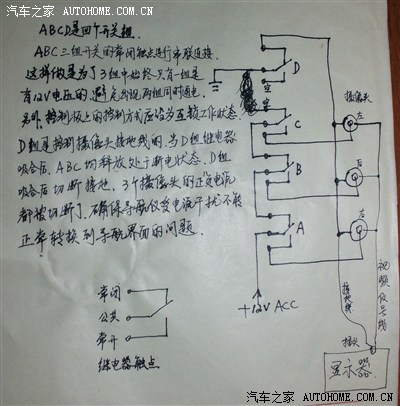 汽车之家 AUTOHOME.COM.CN
ABCD是四个开关组.
ABC三组开关的常闭触点进行串联连接.
这样做是为了3组中始终只有一组是
有12V电压的.避免出现两组同时通电.
另外,控制板上的控制方式应始为互锁工作状态.
D组是控制摄像头接地线的.当D组继电器
吸合后.ABC均释放处于断电状态.D组
吸合后切断接地.3个摄像头的正负电流
都被切断了.确保导航仪受电流干扰不能
正常转换到导航界面的问题.
D
空
空
C
B
A
+12V ACC
摄像头
左
右
后
接地线
视频信号线
插头
显示器
常闭
公共
常开
继电器触点
汽车之家 AUTOHOME.COM.CN